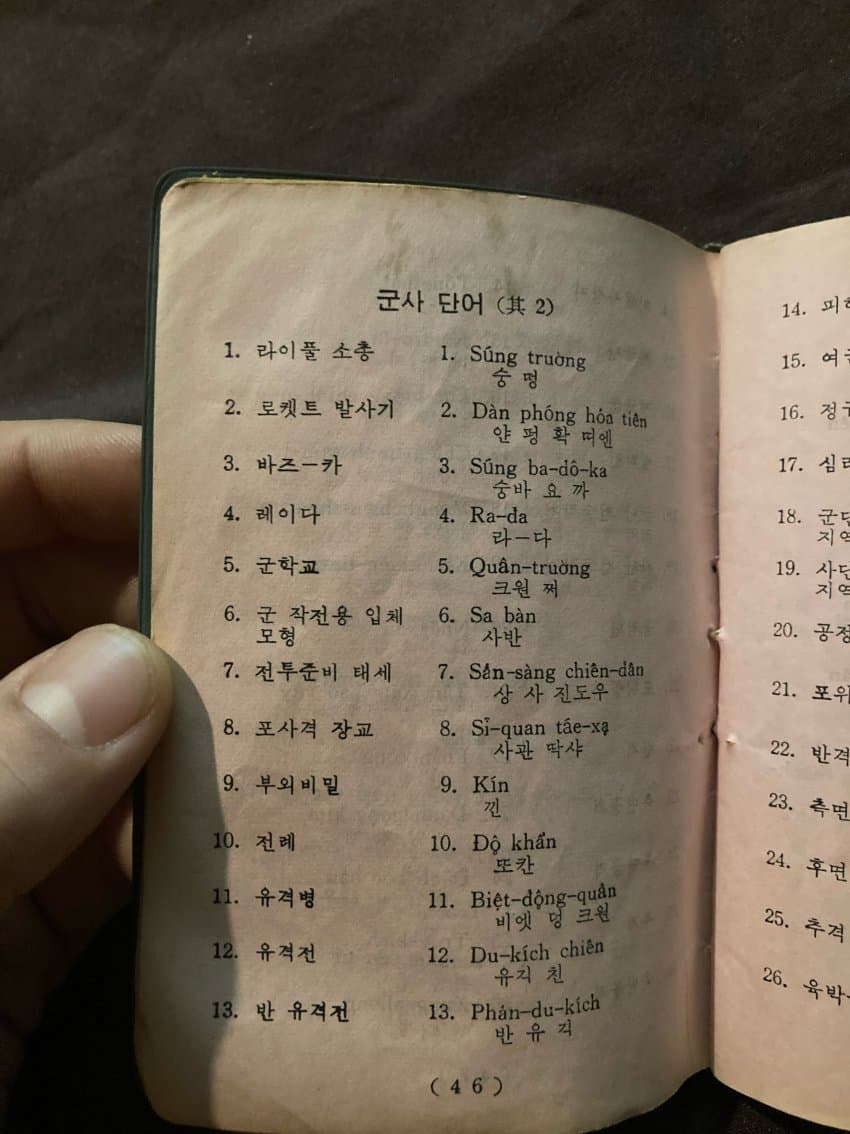 군사 단어 (其 2)
1. 라이풀 소총
1. Súng truờng
숭 떵
2. 로켓트 발사기
2. Dàn phóng hỏa tiên
얀 펑 확 띠엔
3. 바즈-카
3. Súng ba-dô-ka
숭바 요 까
4. 레이다
4. Ra-da
라-다
5. 군학교
5. Quân-truờng
크원 쩌
6. 군 작전용 입체
모형
6. Sa bàn
사반
7. 전투준비 태세
7. Sẩn-sàng chiên-dân
상 사 진도우
8. 포사격 장교
8. Sỉ-quan táe-xạ
사관 딱샤
9. 부외비밀
9. Kín
낀
10. 전례
10. Độ khẩn
또칸
11. 유격병
11. Biệt-dộng-quân
비엣 덩 크원
12. 유격전
12. Du-kích chiên
유긱 친
13. 반 유격전
13. Phản-du-kích
반 유 긱
(46)
14.
15.
16. 정
17. 심
18. 군단
지역
19. 사단
지역
20. 공정
21. 포위
22. 반격
23. 측면
24. 후면
25. 추격
26. 육박